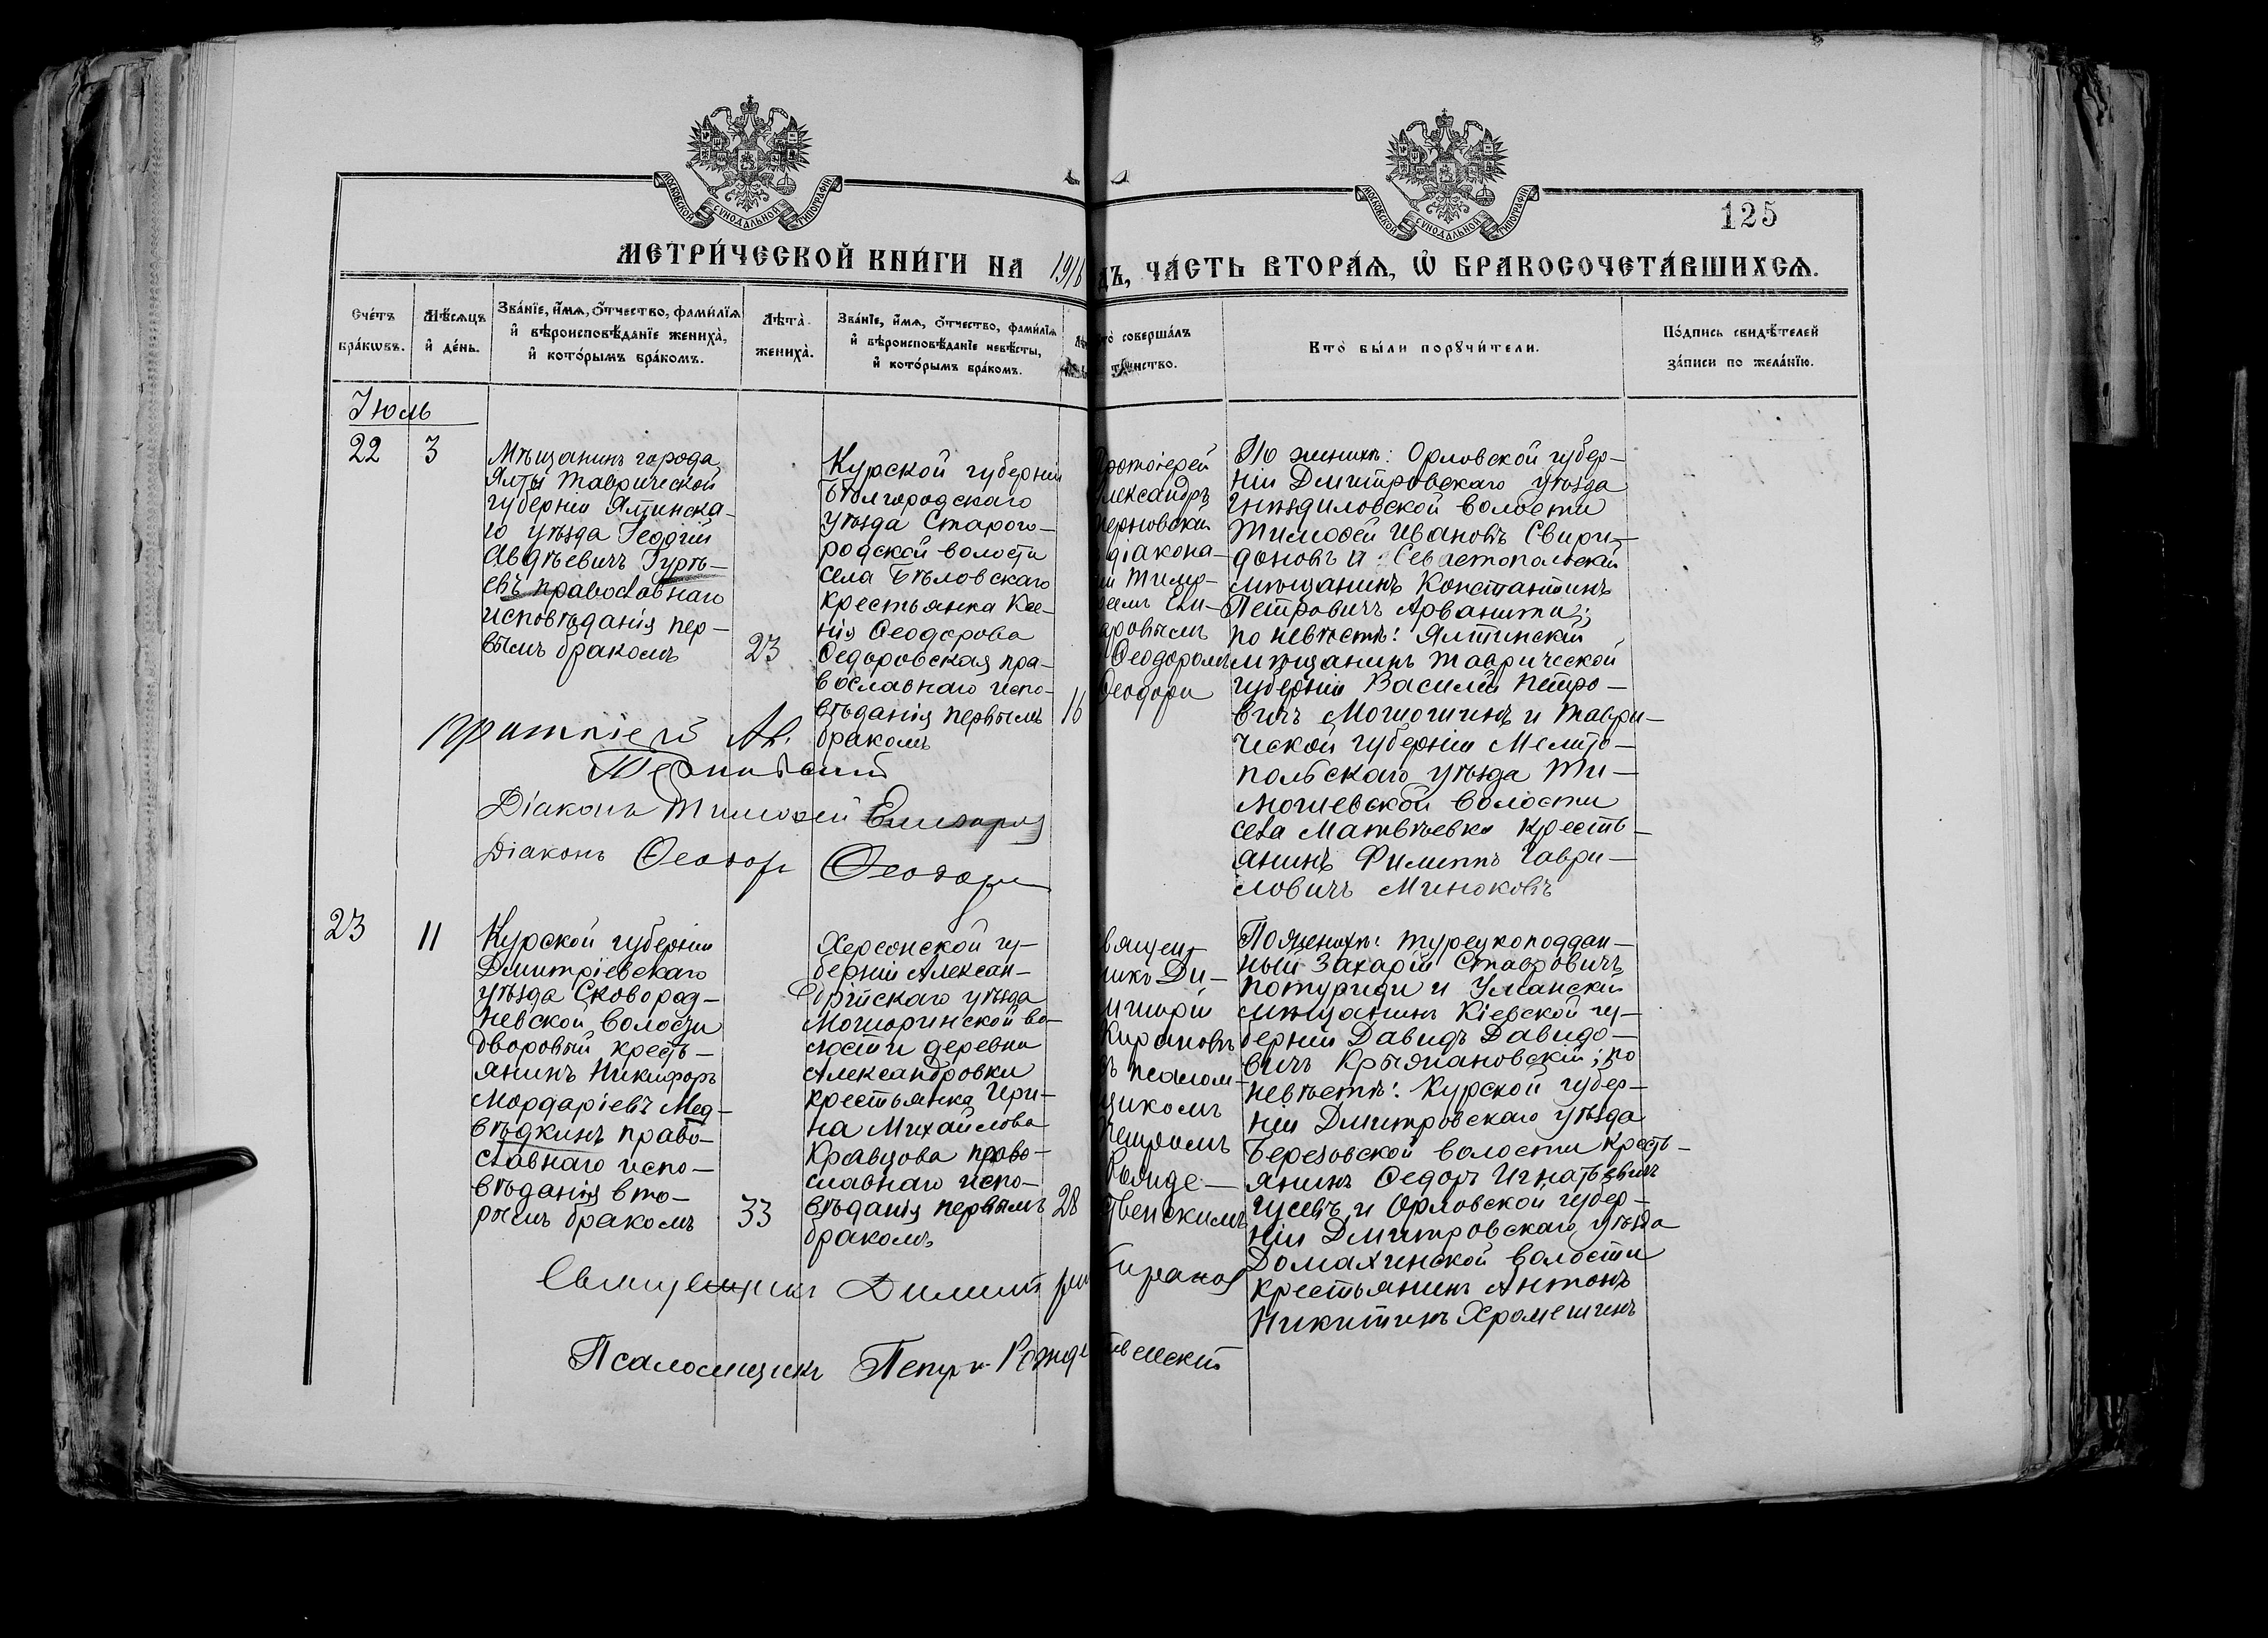 МОСКОВСКОЙ СѴНОДАЛЬНОЙ ТИПОГРАФІИ
МОСКОВСКОЙ СѴНОДАЛЬНОЙ ТИПОГРАФІИ
125
МЕТРИ́ЧЕСКОЙ КНИ́ГИ НА 1916
ДЪ, ЧА́СТЬ ВТОРА́Ѧ, Ѡ҆ БРАКОСОЧЕТА́ВШИХСѦ.
Сче́тъ
бра́кѡвъ.
Мѣ́сѧцъ
и҆ де́нь.
Зва́нїе, и҆́мѧ, ѻ҆́тчество, фами́лїѧ
и҆ вѣроисповѣ́данїе жениха̀,
и҆ кото́рымъ бра́комъ.
Лѣ́та
жениха̀.
Зва́нїе, и҆́мѧ, ѻ҆́тчество, фами́лїѧ
и҆ вѣроисповѣ́данїе невѣ́сты,
и҆ кото́рымъ бра́комъ.
то̀ соверша́лъ
та́инство.
Кто̀ бы́ли порꙋчи́тели.
По́дпись свидѣ́телей
за́писи по жела́нїю.
Іюль
22
3
Мѣщанинъ города
Ялты Таврической
губерніи Ялтинска-
го уѣзда Георгій
Авдѣевичъ Гурѣ-
евъ православнаго
исповѣданія пер-
вымъ бракомъ
23
Курской губерніи
Бѣлгородскаго
уѣзда Старого-
родской волости
села Бѣловскаго
крестьянка Ксе-
нія Ѳеодорова
Ѳедоровская пра-
вославнаго испо-
вѣданія первымъ
бракомъ
16
ротоіерей
лександръ
ерновскій
діакона-
ми Тимо-
ѳеемъ Ели-
аровымъ
Ѳеодоромъ
Ѳеодори
По женихѣ: Орловской губер-
ніи Дмитровскаго уѣзда
Гнѣздиловской волости
Тимоѳей Ивановъ Свири-
доновъ и Севастопольскій
мѣщанинъ Константинъ
Петровичъ Арванити;
по невѣстѣ: Ялтинскій
мѣщанинъ Таврической
губерніи Василій Петро-
вичъ Мошошинъ и Таври-
ческой губерніи Мелито-
польскаго уѣзда Ти-
мошевской волости
села Матвѣевки кресть-
янинъ Филиппъ Гаври-
ловичъ Миноковъ
Ал.
Терновскій
Діаконъ Тимоѳей Елизаровъ
Діаконъ Ѳеодоръ Ѳеодори
23
11
Курской губерніи
Дмитріевскаго
уѣзда Сковород-
невской волости
дворовый кресть-
янинъ Никифоръ
Мордаріевъ Мед-
вѣдкинъ право-
славнаго испо-
вѣданія вто-
рымъ бракомъ
33
Херсонской гу-
берніи Алексан-
дрійскаго уѣзда
Мошоринской во-
лости деревни
Александровки
крестьянка Ири-
на Михайлова
Кравцова право-
славнаго испо-
вѣданія первымъ
бракомъ
28
вящен
никъ Ди-
митрій
Кирановъ
ъ псалом-
щикомъ
Петромъ
Рожде-
твенскимъ
По женихѣ: турецкоподдан-
ный Захарій Ставровичъ
Потуриди и Уманскій
мѣщанинъ Кіевской гу-
берніи Давидъ Давидо-
вичъ Крыжановскій; по
невѣстѣ: Курской губер-
ніи Дмитровскаго уѣзда
Березовской волости кресть-
янинъ Ѳедоръ Игнатьевичъ
Гусевъ и Орловской губер-
ніи Дмитровскаго уѣзда
Домахинской волости
крестьянинъ Антонъ
Никитинъ Хромешинъ
Священникъ Димитрій Кирановъ
Псаломщикъ Петръ Рождественскій